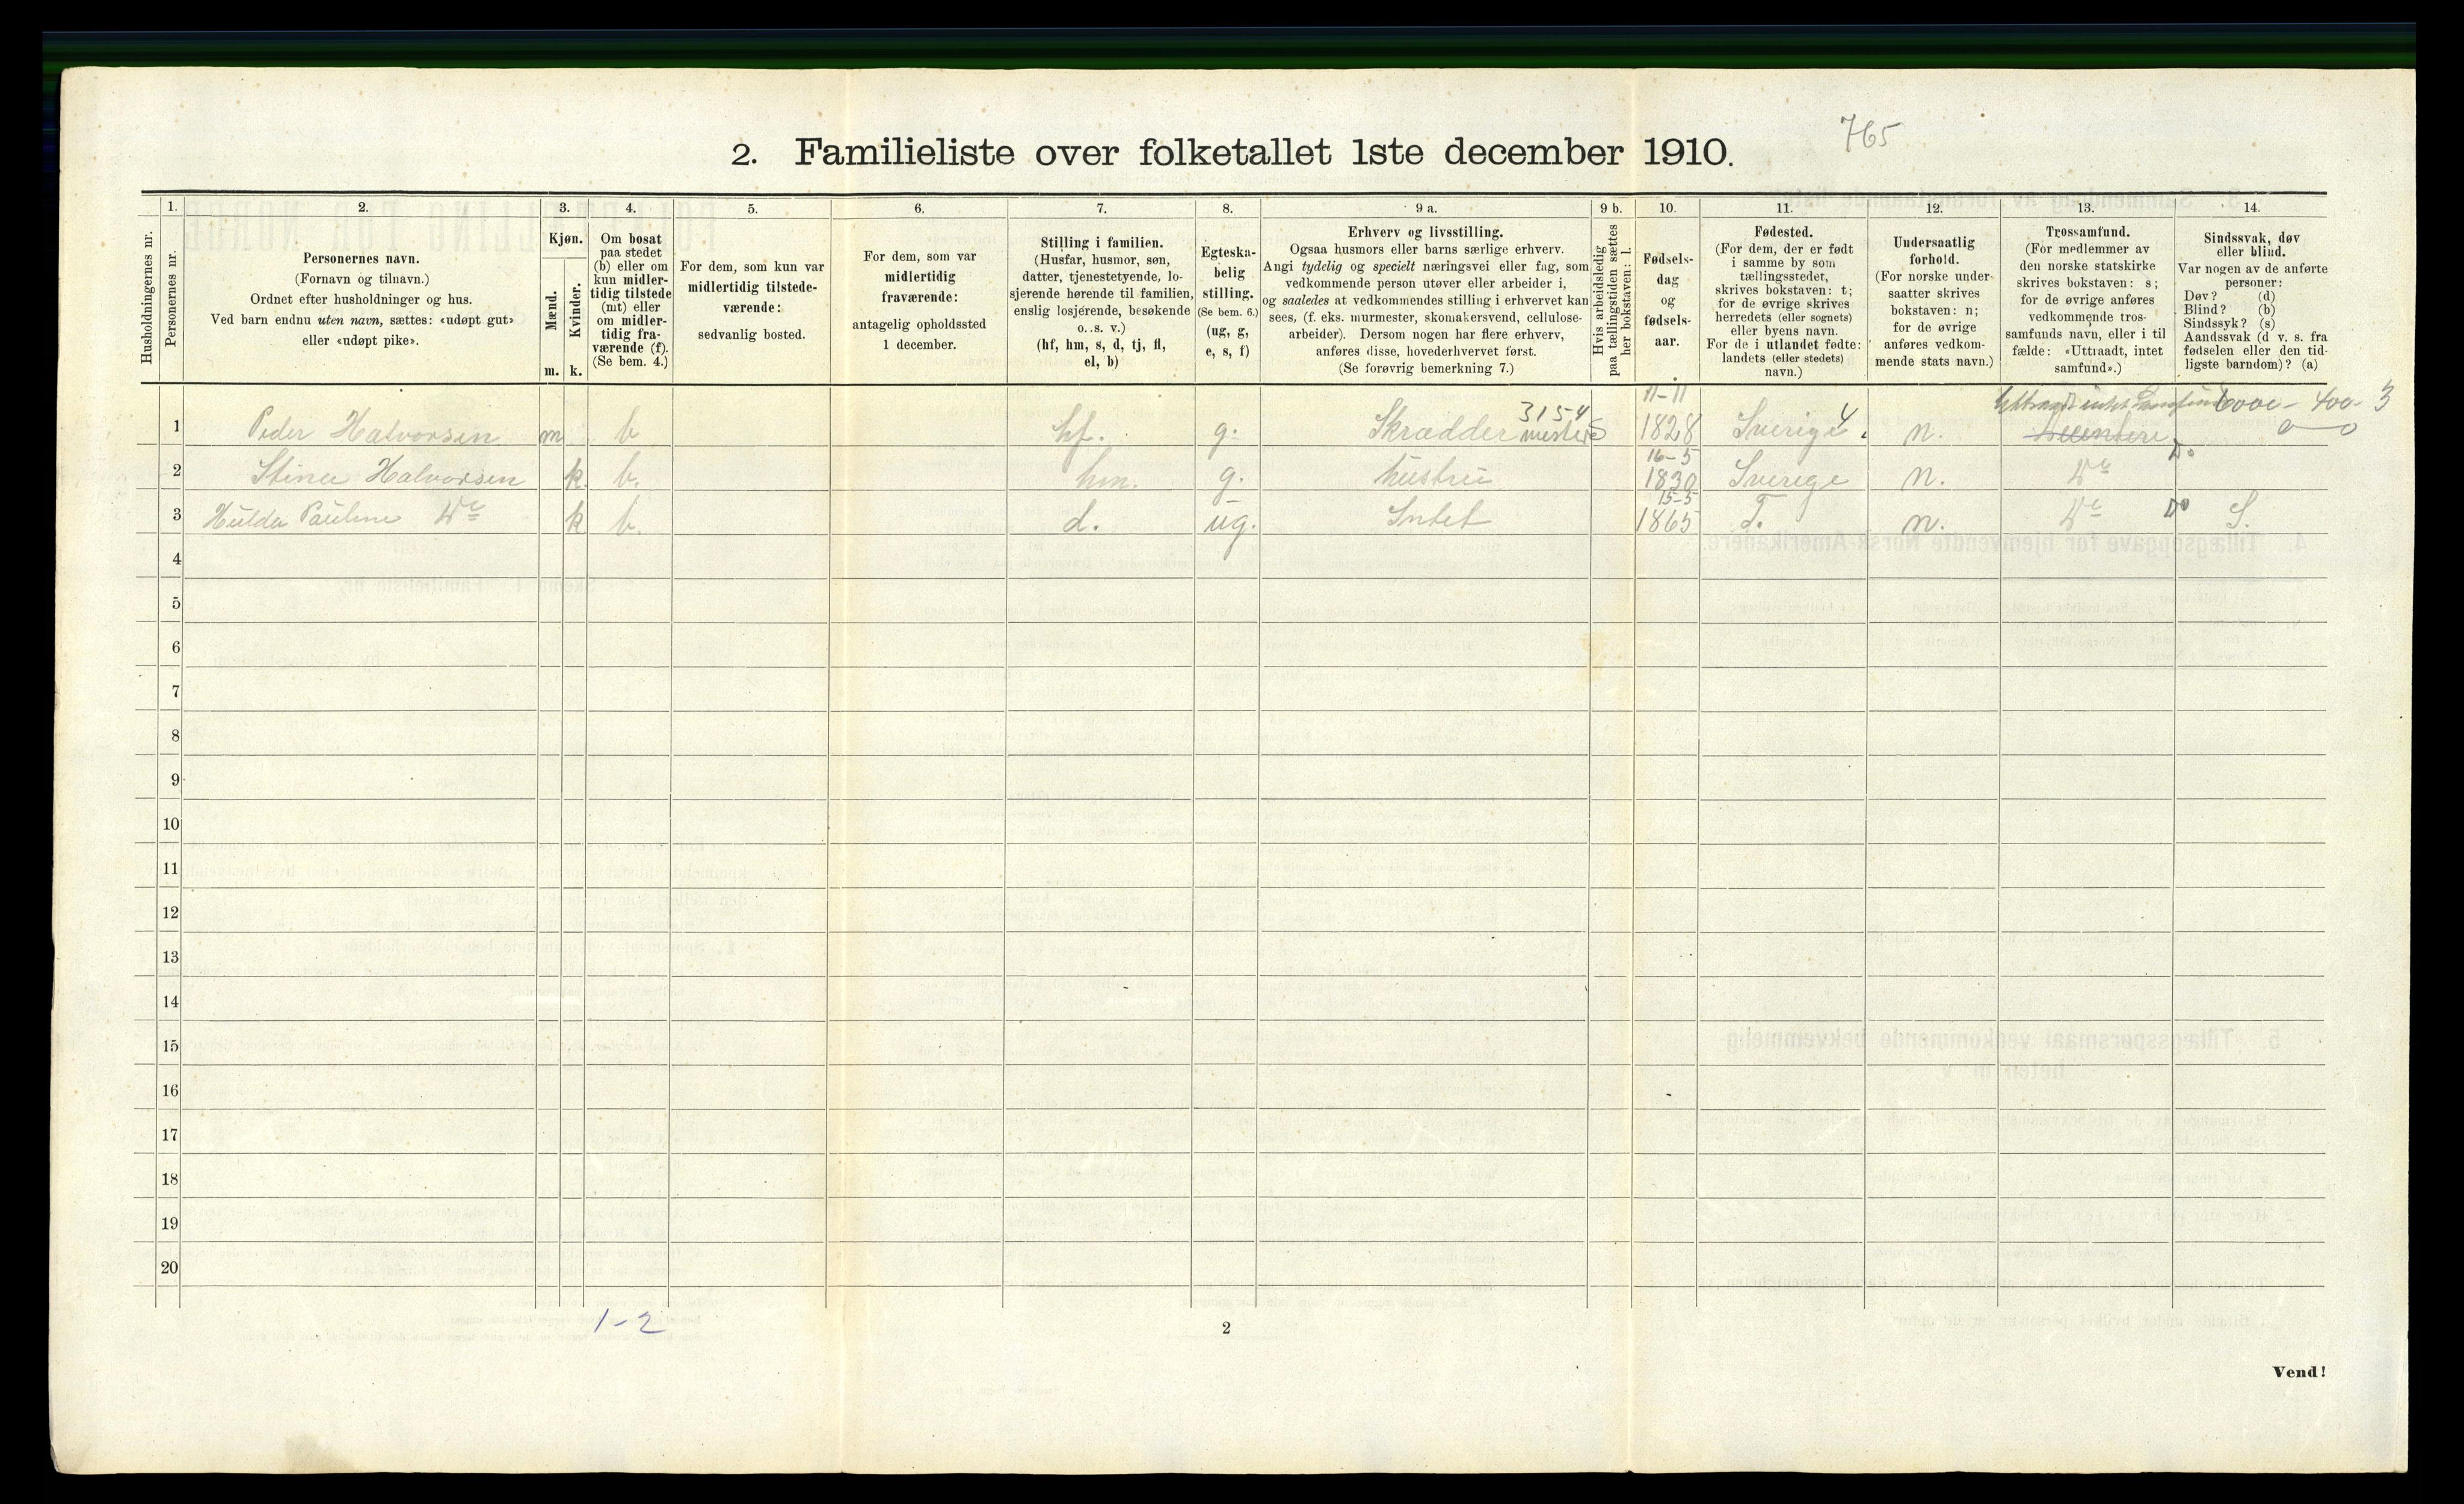 765
2. Familieliste over folketallet 1ste december 1910.
Husholdningernes nr.
1. Personernes nr.
2. Personernes navn.
(Fornavn og tilnavn.)
Ordnet efter husholdninger og hus.
Ved barn endnu uten navn, sættes: «udøpt gut»
eller «udøpt pike».
3. Kjøn.
Mænd. m.
Kvinder. k.
4. Om bosat
paa stedet
(b) eller om
kun midler-
tidig tilstede
(mt) eller
om midler-
tidig fra-
værende (f).
(Se bem. 4.)
5. For dem, som kun var
midlertidig tilstede-
værende:
sedvanlig bosted.
6. For dem, som var
midlertidig
fraværende:
antagelig opholdssted
1 december.
7. Stilling i familien.
(Husfar, husmor, søn,
datter, tjenestetyende, lo-
sjerende hørende til familien,
enslig losjerende, besøkende
o. s. v.)
(hf, hm, s, d, tj, fl,
el, b)
8. Egteska-
belig
stilling.
(Se bem. 6.)
(ug, g,
e, s, f)
9 a. Erhverv og livsstilling.
Ogsaa husmors eller barns særlige erhverv.
Angi tydelig og specielt næringsvei eller fag, som
vedkommende person utøver eller arbeider i,
og saaledes at vedkommendes stilling i erhvervet kan
sees, (f. eks. murmester, skomakersvend, cellulose-
arbeider). Dersom nogen har flere erhverv,
anføres disse, hovederhvervet først.
(Se forøvrig bemerkning 7.)
9 b. Hvis arbeidsledig
paa tællingstiden sættes
her bokstaven: l.
10. Fødsels-
dag
og
fødsels-
aar.
11. Fødested.
(For dem, der er født
i samme by som
tællingsstedet,
skrives bokstaven: t;
for de øvrige skrives
herredets (eller sognets)
eller byens navn.
For de i utlandet fødte:
landets (eller stedets)
navn.)
12. Undersaatlig
forhold.
(For norske under-
saatter skrives
bokstaven: n;
for de øvrige
anføres vedkom-
mende stats navn.)
13. Trossamfund.
(For medlemmer av
den norske statskirke
skrives bokstaven: s;
for de øvrige anføres
vedkommende tros-
samfunds navn, eller i til
fælde: «Uttraadt, intet
samfund».)
14. Sindssvak, døv
eller blind.
Var nogen av de anførte
personer:
Døv? (d)
Blind? (b)
Sindssyk? (s)
Aandssvak (d v. s. fra
fødselen eller den tid-
ligste barndom)? (a)
1 Peder Halvorsen m b hf. g. Skrædder mester 3154 S 11-11 1828 Sverige 4 n. Uttraadt intet Samfund 400- 3
2 Stina Halvorsen k. b. hm. g. hustru 16-5 1830 Sverige n. Do Do
3 Hulda Pauline Do k b. d. ug. Intet 15-5 1865 T. n. Do Do S.
4
5
6
7
8
9
10
11
12
13
14
15
16
17
18
19
20
1-2
2
Vend!